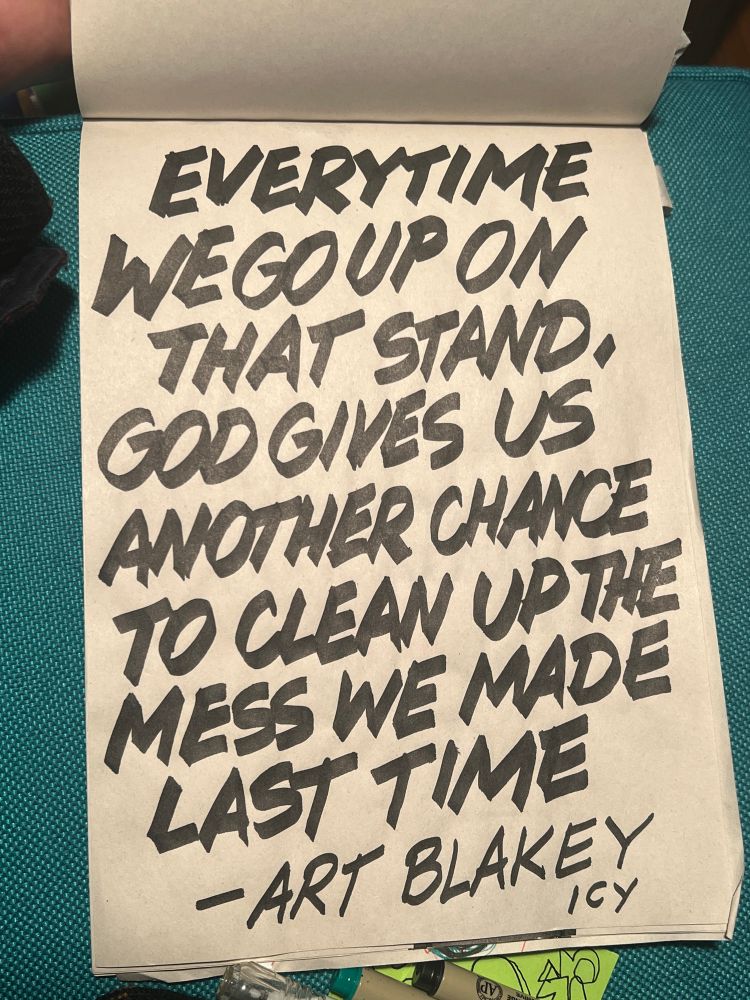 EVERYTIME
WE GO UP ON
THAT STAND,
GOD GIVES US
ANOTHER CHANCE
TO CLEAN UP THE
MESS WE MADE
LAST TIME
-ART BLAKEY
ICY
AP